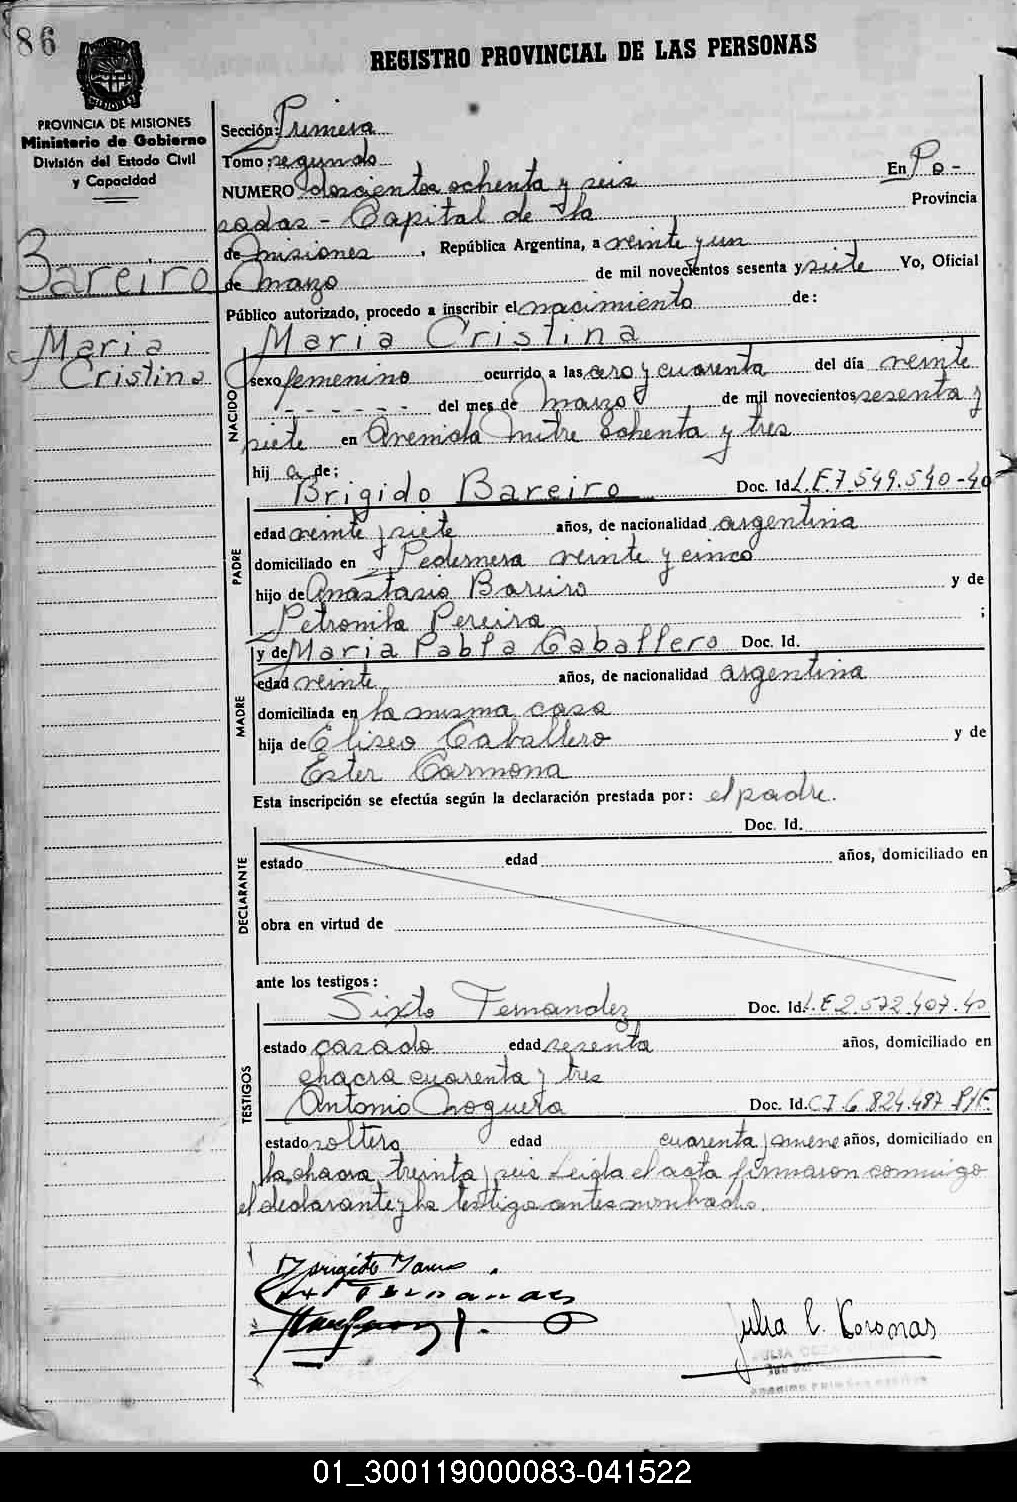 86
REGISTRO PROVINCIAL DE LAS PERSONAS
PROVINCIA DE MISIONES
Ministerio de Gobierno
División del Estado Civil
y Capacidad
Bareiro
Maria
Cristina
Sección: Primera
Tomo: segundo
NUMERO doscientos ochenta y seis En Po-
sadas - Capital de la Provincia
de Misiones, República Argentina, a veinte y un
de marzo de mil novecientos sesenta y siete Yo, Oficial
Público autorizado, procedo a inscribir el nacimiento de:
Maria Cristina
NACIDO
sexo femenino ocurrido a las cero y cuarenta del día veinte
- - - - - - del mes de Marzo de mil novecientos sesenta y
siete en Avenida Mitre ochenta y tres
hij a de:
Brigido Bareiro Doc. Id. L.E. 7.549.540-40
PADRE
edad veinte y siete años, de nacionalidad argentina
domiciliado en Pedernera veinte y cinco
hijo de Anastasio Bareiro y de
Petronila Pereira ;
y de Maria Pabla Caballero Doc. Id.
MADRE
edad veinte años, de nacionalidad argentina
domiciliada en la misma casa
hija de Eliseo Caballero y de
Ester Carmona
Esta inscripción se efectúa según la declaración prestada por: el padre.
Doc. Id.
DECLARANTE
estado edad años, domiciliado en
obra en virtud de
ante los testigos:
Sixto Fernandez Doc. Id. L.E 2.572.407.40
TESTIGOS
estado casado edad sesenta años, domiciliado en
chacra cuarenta y tres
Antonio Noguera Doc. Id. C.I. 6.824.487
estado soltero edad cuarenta y años, domiciliado en
la chacra treinta y seis Leida el acta firmaron conmigo
el declarante y los testigos antes nombrados.
Fernandez
Julia C. Coronas
01_300119000083-041522